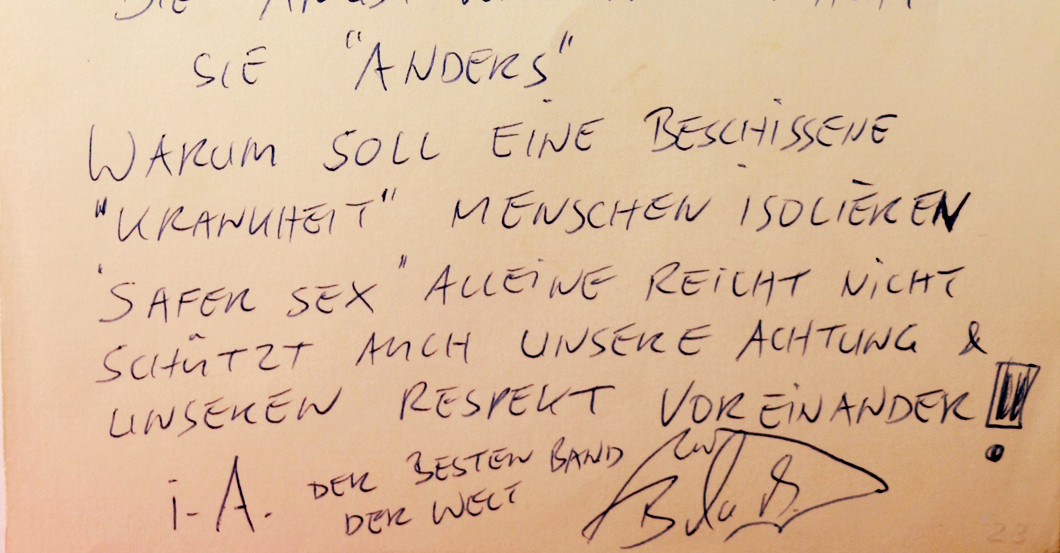 DIE ANGST
SIE "ANDERS"
WARUM SOLL EINE BESCHISSENE
"KRANKHEIT" MENSCHEN ISOLIEREN
"SAFER SEX" ALLEINE REICHT NICHT
SCHÜTZT AUCH UNSERE ACHTUNG &
UNSEREN RESPEKT VOREINANDER!
i.A. DER BESTEN BAND
DER WELT
Bela B.
23